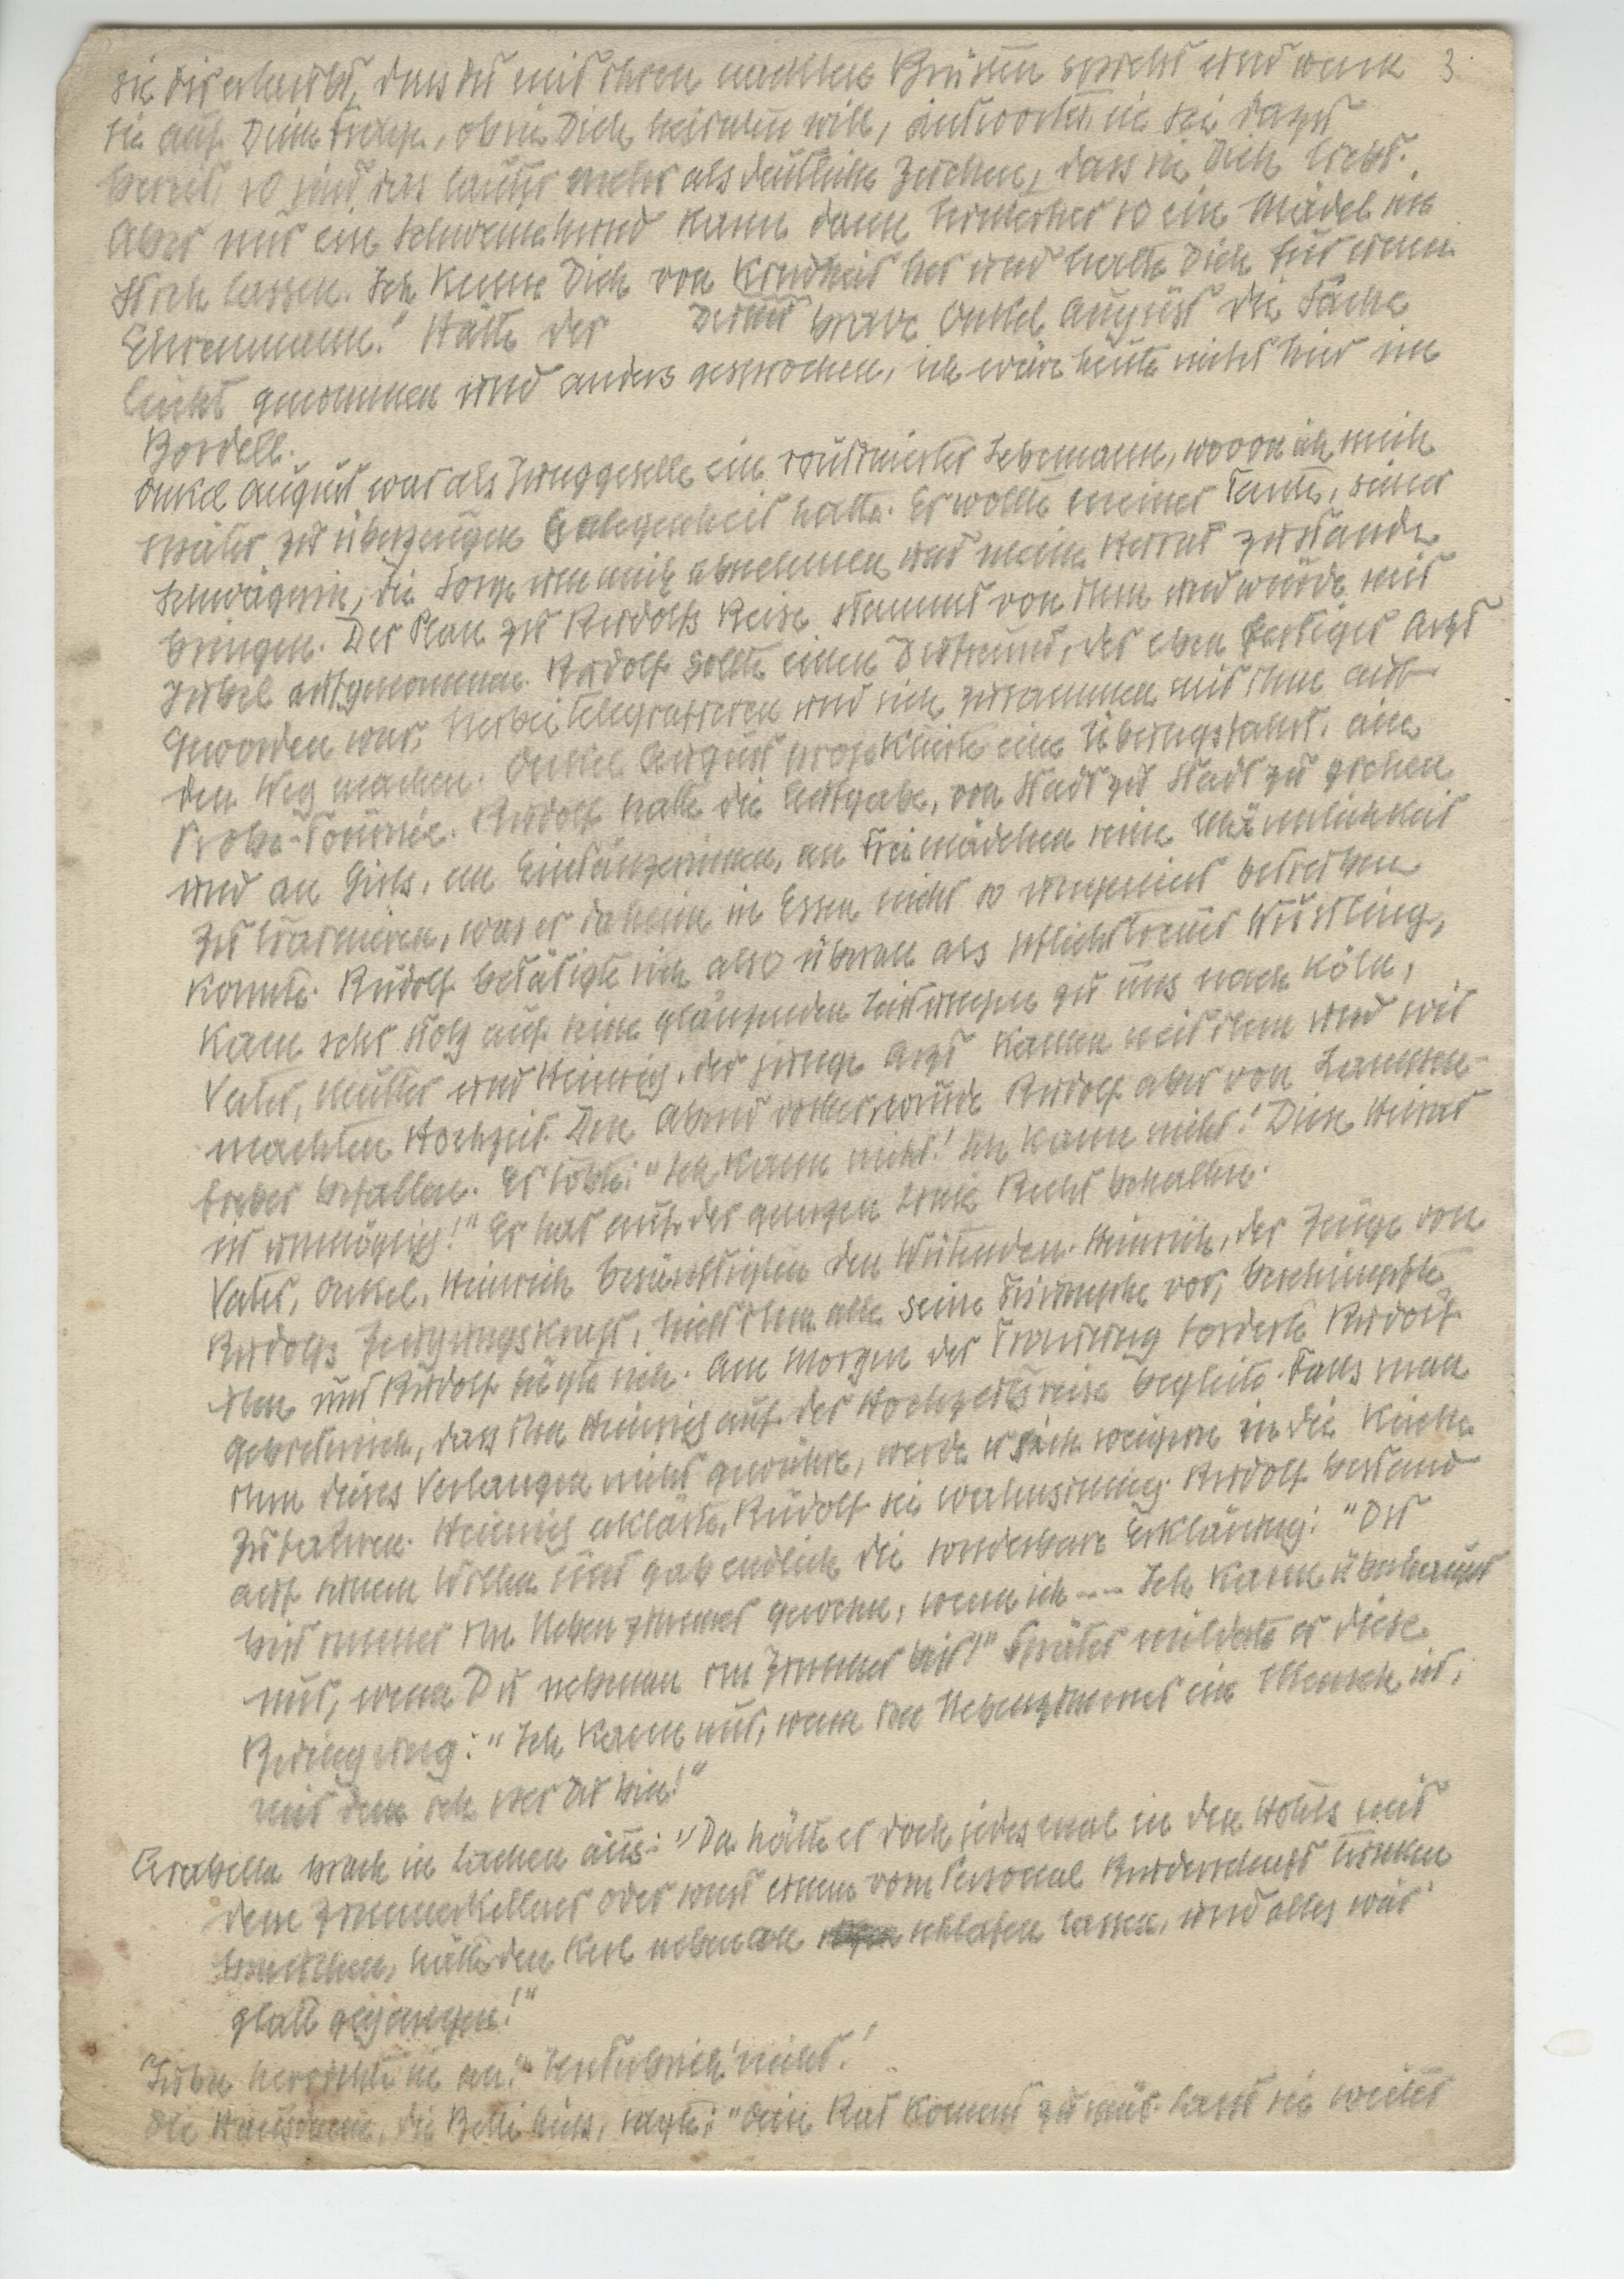 3
sie Dir erlaubt, dass Du mit ihren nackten Brüsten spielst und wenn
sie auf Deine Frage, ob sie Dich heiraten will, antwortet, sie sei dazu
bereit, so sind das lauter mehr als deutliche Zeichen, dass sie Dich liebt.
Aber nur ein Schweinehund kann dann hinterher so ein Mädel im
Stich lassen. Ich kenne Dich von Kindheit her und halte Dich für einen
Ehrenmann!" Hätte der brave Onkel August die Sache
leicht genommen und anders gesprochen, ich wäre heute nicht hier im
Bordell.
Onkel August war als Junggeselle ein routinierter Lebemann, wovon ich mich
später zu überzeugen Gelegenheit hatte. Er wollte meiner Tante, seiner
Schwägerin, die Sorge um mich abnehmen und meine Heirat zustande
bringen. Der Plan zu Rudolfs Reise stammt von ihm und wurde mit
Jubel aufgenommen. Rudolf sollte einen Duzfreund, der eben fertiger Arzt
geworden war, herbei telegrafieren und sich zusammen mit ihm auf
den Weg machen. Onkel August projektierte eine Übungsfahrt, eine
Probe-Tournée. Rudolf hatte die Aufgabe, von Stadt zu Stadt zu gehen
und an Girls, an Eintänzerinnen, an Freimädchen seine Männlichkeit
zu trainieren, was er daheim in Essen nicht so ungeniert betreiben
konnte. Rudolf betätigte sich also überall als pflichttreuer Wüstling,
kam sehr stolz auf seine glänzenden Leistungen zu uns nach Köln,
Vater, Mutter und Heinrich, der junge Arzt kamen mit ihm und wir
machten Hochzeit. Den Abend vorher wurde Rudolf aber von Lampen-
fieber befallen. Er tobte: "Ich kann nicht! Ich kann nicht! Diese Heirat
ist unmöglich!" Er hat auf der ganzen Linie Recht behalten.
Vater, Onkel, Heinrich besänftigten den Wütenden. Heinrich, der Zeuge von
Rudolfs Zeugungskraft, hielt ihm alle seine Triumphe vor, beschimpfte
ihn und Rudolf fügte sich. Am Morgen der Trauung forderte Rudolf
gebieterisch, dass ihn Heinrich auf der Hochzeitsreise begleite. Falls man
ihm dieses Verlangen nicht gewähre, werde er sich weigern in die Kirche
zu fahren. Heinrich erklärte, Rudolf sei wahnsinnig. Rudolf bestand
auf seinem Willen und gab endlich die sonderbare Erklärung: "Du
bist immer im Nebenzimmer gewesen, wenn ich --- Ich kann überhaupt
nur, wenn Du nebenan im Zimmer bist!" Später milderte er diese
Bedingung: "Ich kann nur, wenn im Nebenzimmer ein Mensch ist,
mit dem ich per Du bin!"
Arabella brach in Lachen aus: "Da hätte er doch jedesmal in den Hotels mit
dem Zimmerkellner oder sonst einem vom Personal Bruderschaft trinken
brauchen, hätte den Kerl nebenan schlafen lassen, und alles wär
glatt gegangen!"
herrschte sie an: "Unterbrich nicht!"
Die Hausdame, die Belli hiess, sagte: "Dein Rat kommt zu spät. Lasst sie weiter